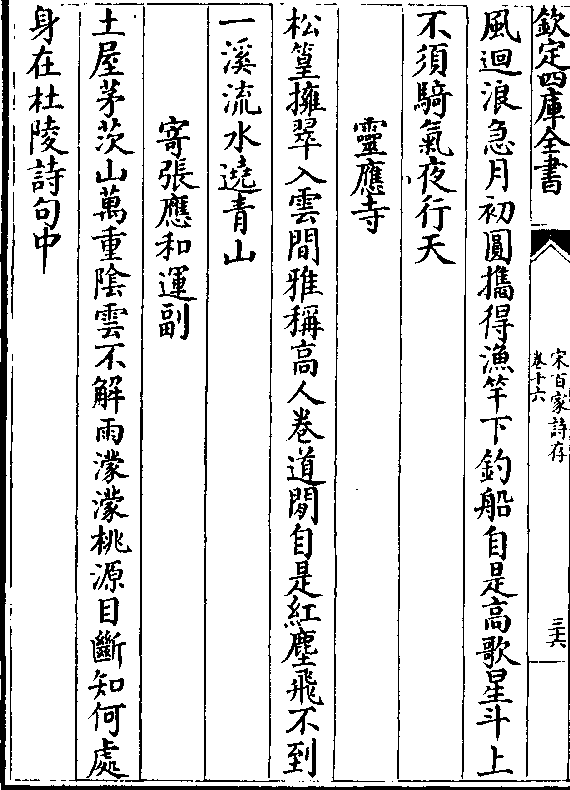 欽定四庫全書
宋百家詩存
卷十六
三六
風迴浪急月初圓攜得漁竿下釣船自是高歌星斗上
不須騎氣夜行天
靈應寺
松篁擁翠入雲間雅稱高人卷道閒自是紅塵飛不到
一溪流水遶青山
寄張應和運副
土屋茅茨山萬重陰雲不解雨濛濛桃源目斷知何處
身在杜陵詩句中